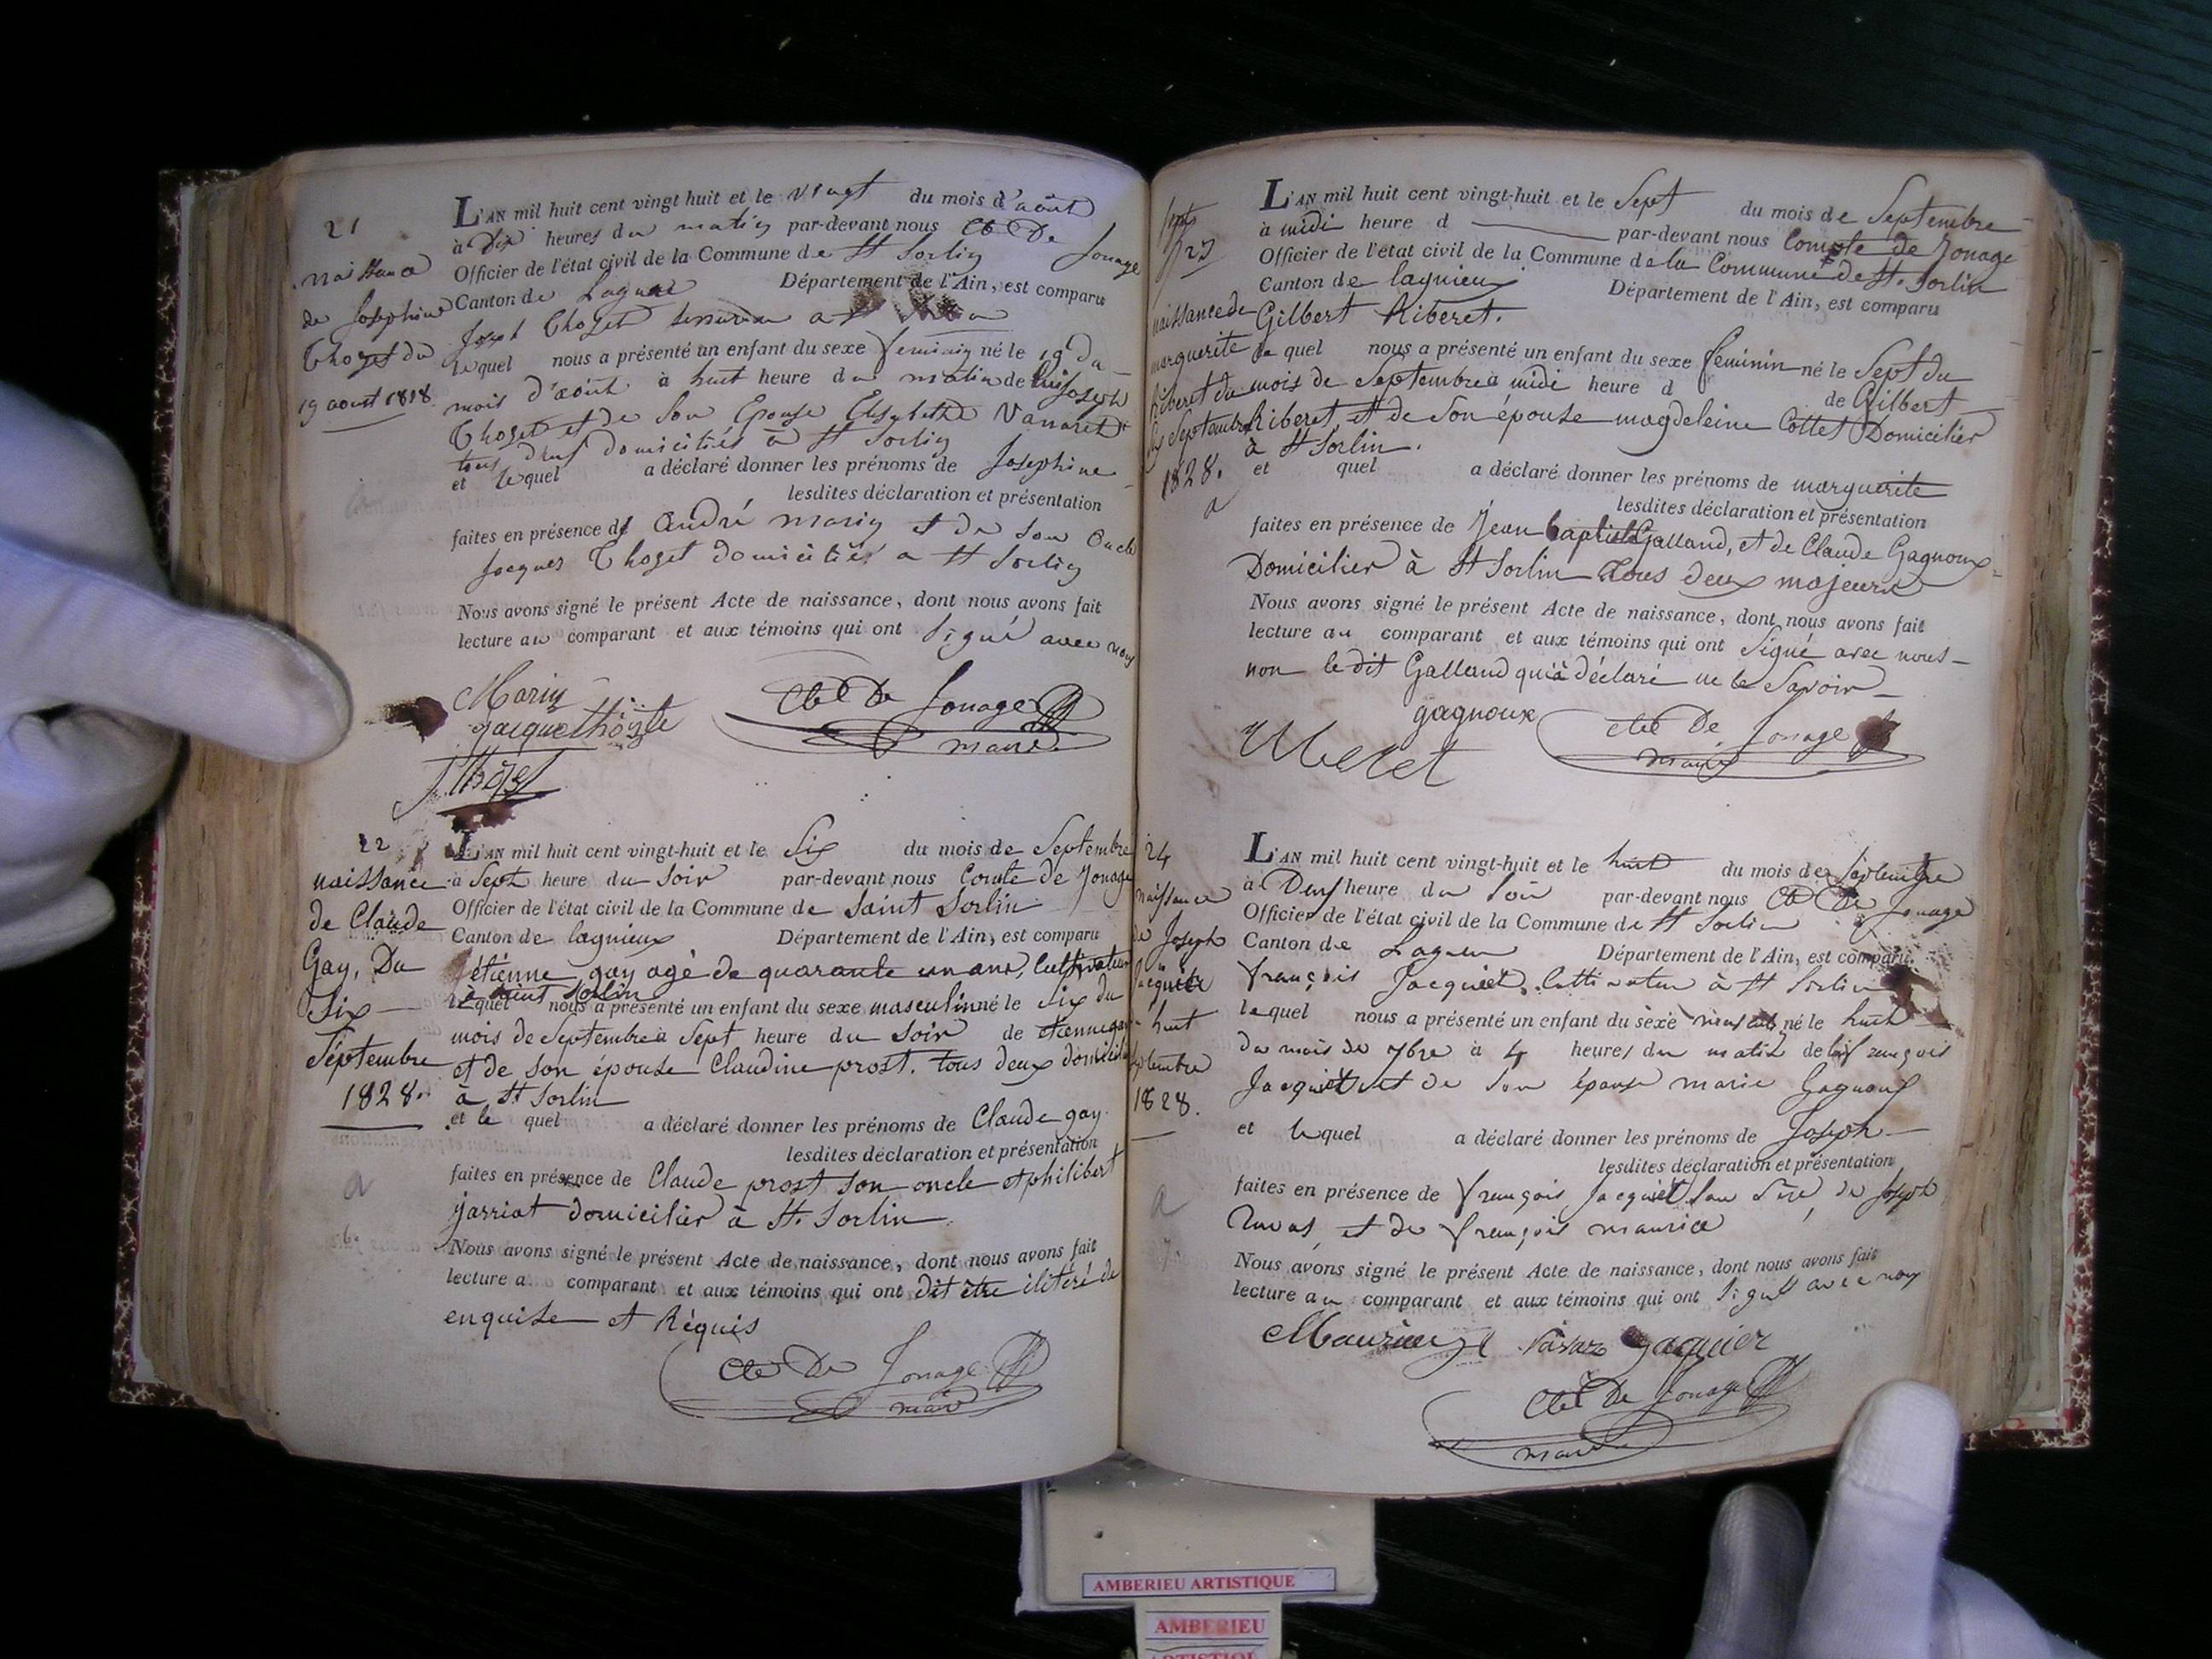 21
naissance
de Josephine
Thozet du
19 aout 1828
L'AN mil huit cent vingt huit et le vingt du mois d'août
à dix heures du matin par-devant nous Cte De Jonage
Officier de l'état civil de la Commune de St Sorlin
Canton de Lagnieu Département de l'Ain, est comparu
Joseph Thozet
lequel nous a présenté un enfant du sexe feminin né le 19 du
mois d'août à huit heure du matin de lui Joseph
Thozet et de son Epouse Elisabeth Vanaret
tous deux domiciliés à St Sorlin
et lequel a déclaré donner les prénoms de Josephine
lesdites déclaration et présentation
faites en présence de André marin et de son Oncle
Jacques Thozet domiciliés a St Sorlin
Nous avons signé le présent Acte de naissance, dont nous avons fait
lecture au comparant et aux témoins qui ont signé avec nous
Marin
jacque thozte
Cte De Jonage
maire
J. Thozet
22
naissance
de Claude
Gay, Du
Six
Septembre
1828.
a
L'AN mil huit cent vingt-huit et le Six du mois de Septembre
à Sept heure du Soir par-devant nous Comte de Jonage
Officier de l'état civil de la Commune de Saint Sorlin
Canton de lagnieux Département de l'Ain, est comparu
étiénne gay agé de quarante un ans, Cultivateur
à saint Sorlin
lequel nous a présenté un enfant du sexe masculin né le Six du
mois de Septembre à Sept heure du Soir de etienne gay
et de son épouse Claudine prost. tous deux domicilié
à St Sorlin
et le quel a déclaré donner les prénoms de Claude gay.
lesdites déclaration et présentation
faites en présence de Claude prost son oncle et philibert
jarriat domicilier à St. Sorlin
Nous avons signé le présent Acte de naissance, dont nous avons fait
lecture a comparant et aux témoins qui ont dit etre ilitéré de
enquise et Réquis
Cte De Jonage
maire
23
naissance de
marguerite
Riberet du
Septembre
1828.
a
L'AN mil huit cent vingt-huit et le Sept du mois de Septembre
à midi heure d par-devant nous Compte de Jonage
Officier de l'état civil de la Commune de la Commune de St. Sorlin
Canton de lagnieux Département de l'Ain, est comparu
Gilbert Riberet.
le quel nous a présenté un enfant du sexe feminin né le Sept du
mois de Septembre à midi heure d de Gilbert
Riberet, et de Son épouse magdeleine Cottet Domicilier
à St Sorlin.
et quel a déclaré donner les prénoms de marguerite
lesdites déclaration et présentation
faites en présence de Jean baptiste Galland, et de Claude Gagnoux
Domicilier à St Sorlin tous deux majeurs
Nous avons signé le présent Acte de naissance, dont nous avons fait
lecture au comparant et aux témoins qui ont Signé avec nous
non le dit Galland qui à déclaré ne le Savoir
gagnoux
Cte De Jonage
maire
24
naissance
de Joseph
Jacquiet
huit
septembre
1828.
a
L'AN mil huit cent vingt-huit et le huit du mois de septembre
à Deux heure du Soir par-devant nous Cte De Jonage
Officier de l'état civil de la Commune de St Sorlin
Canton de Lagnieu Département de l'Ain, est comparu
françois Jacquiet. Cultivateur à St Sorlin
lequel nous a présenté un enfant du sexe né le huit
du mois de 7bre à 4 heures du matin de lui françois
Jacquiet et de son épouse marie Gagnoux
et lequel a déclaré donner les prénoms de Joseph
lesdites déclaration et présentation
faites en présence de françois Jacquiet son de Joseph
et de françois maurice
Nous avons signé le présent Acte de naissance, dont nous avons fait
lecture au comparant et aux témoins qui ont signé avec nous
Cte De Jonage
maire
AMBERIEU ARTISTIQUE
AMBERIEU
ARTISTIQUE